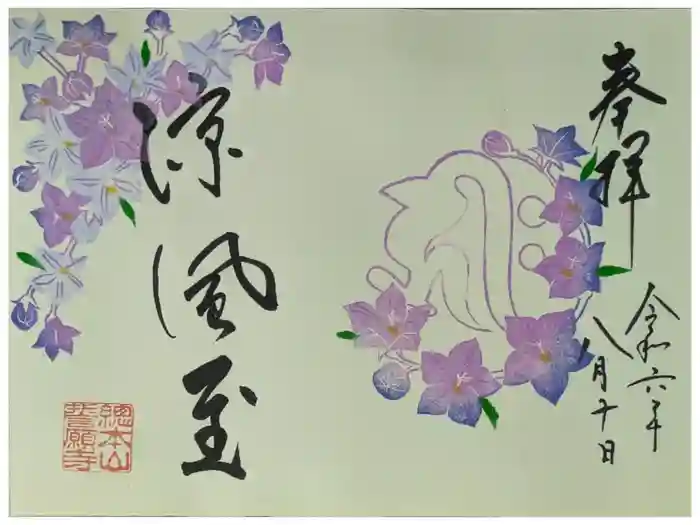 奉拝
令和六年
八月十日
涼風至
總本山
誓願寺